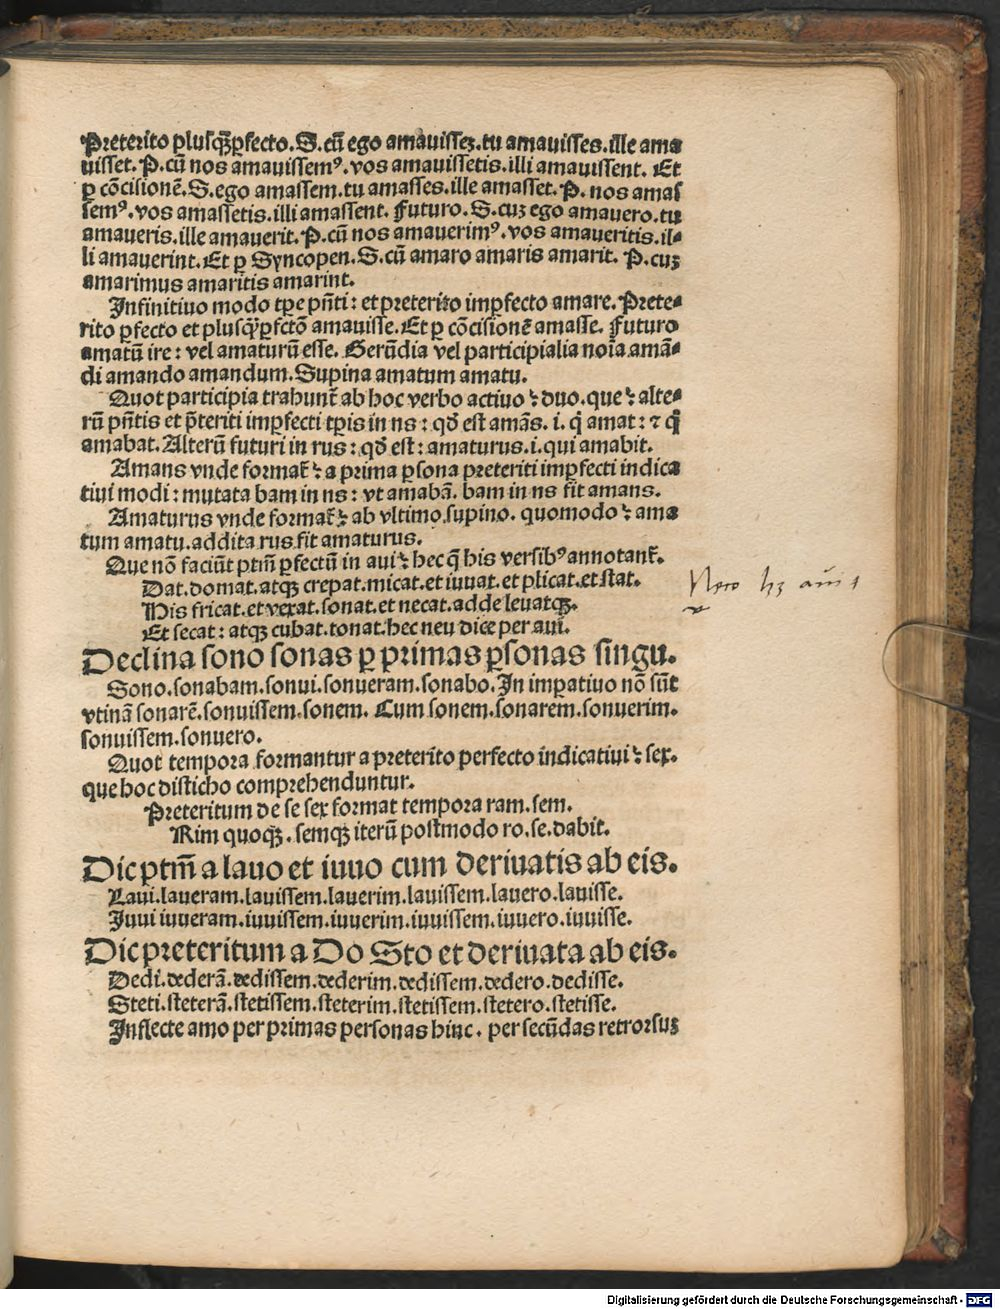 Preterito pluſqᷓꝑfecto.S.cū ego amauiſſeꝫ.tu amauiſſes.ille ama
uiſſet.P.cū nos amauiſſemꝰ.vos amauiſſetis.illi amauiſſent. Et
ꝑ cōciſionē.S.ego amaſſem.tu amaſſes.ille amaſſet.P. nos amaſ
ſemꝰ.vos amaſſetis.illi amaſſent. Futuro.S.cuꝫ ego amauero.tu
amaueris.ille amauerit.P.cū nos amauerimꝰ.vos amaueritis.il⸗
li amauerint.Et ꝑ Syncopen.S.cū amaro amaris amarit. P.cuꝫ
amarimus amaritis amarint.
Infinitiuo modo tꝑe pn̄ti: et preterito imꝑfecto amare.Prete⸗
rito ꝑfecto et pluſqᷓꝑfctō amauiſſe.Et ꝑ cōciſionē amaſſe. Futuro
amatū ire: vel amaturū eſſe. Gerūdia vel participialia noīa amā⸗
di amando amandum.Supina amatum amatu.
Quot participia trahunt̄ ab hoc verbo actiuo ꝛ duo.que ꝛ alte⸗
rū pn̄tis et p̄teriti imꝑfecti tꝑis in ns: qđ eſt amās. i. q̇ amat: ⁊ q̇
amabat.Alterū futuri in rus: qđ eſt: amaturus.i.qui amabit.
Amans vnde format̄ ꝛ a prima ꝑſona preteriti imꝑfecti indica
tiui modi: mutata bam in ns: vt amabā. bam in ns fit amans.
Amaturus vnde format̄ ꝛ ab vltimo ſupino. quomodo ꝛ ama
tum amatu.addita rus fit amaturus.
Que nō faciūt ptm̄ ꝑfectū in aui ꝛ hec q̄ his verſibꝰ annotant̄.
Dat.domat.atqꝫ crepat.micat.et iuuat.et plicat.et ſtat.
His fricat.et vexat.ſonat.et necat.adde leuatqꝫ.
Et ſecat: atqꝫ cubat.tonat.hec neu dice per aui.
Declina ſono ſonas ꝑ primas ꝑſonas ſingu.
Sono.ſonabam.ſonui.ſonueram.ſonabo.In imꝑatiuo nō ſūt
vtinā ſonarē.ſonuiſſem.ſonem. Cum ſonem.ſonarem.ſonuerim.
ſonuiſſem.ſonuero.
Quot tempora formantur a preterito perfecto indicatiui ꝛ ſex.
que hoc diſticho comprehenduntur.
Preteritum de ſe ſex format tempora ram.ſem.
Rim quoqꝫ. ſemqꝫ iterū poſtmodo ro.ſe.dabit.
Dic ptm̄ a lauo et iuuo cum deriuatis ab eis.
Laui.laueram.lauiſſem.lauerim.lauiſſem.lauero.lauiſſe.
Iuui iuueram.iuuiſſem.iuuerim.iuuiſſem.iuuero.iuuiſſe.
Dic preteritum a Do Sto et deriuata ab eis.
Dedi.dederā.dediſſem.dederim.dediſſem.dedero.dediſſe.
Steti.ſteterā.ſtetiſſem.ſteterim.ſtetiſſem.ſtetero.ſtetiſſe.
Inflecte amo per primas perſonas hinc. per ſecūdas retrorſuꝫ
Digitalisierung gefördert durch die Deutsche Forschungsgemeinschaft - DFG